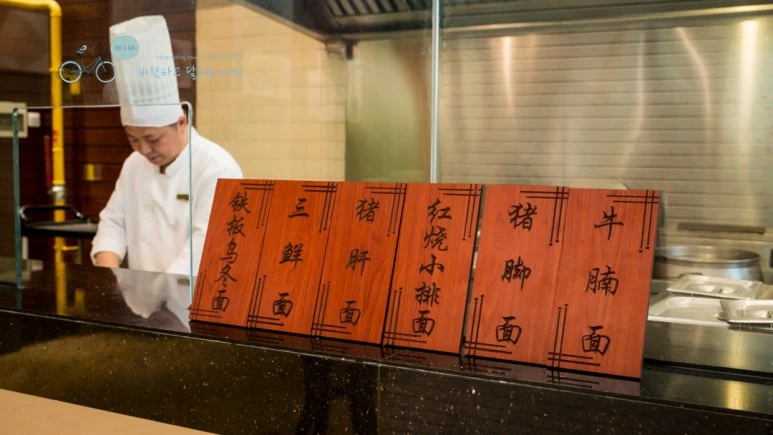 铁板乌冬面
三鲜面
猪肝面
红烧小排面
猪脚面
牛腩面